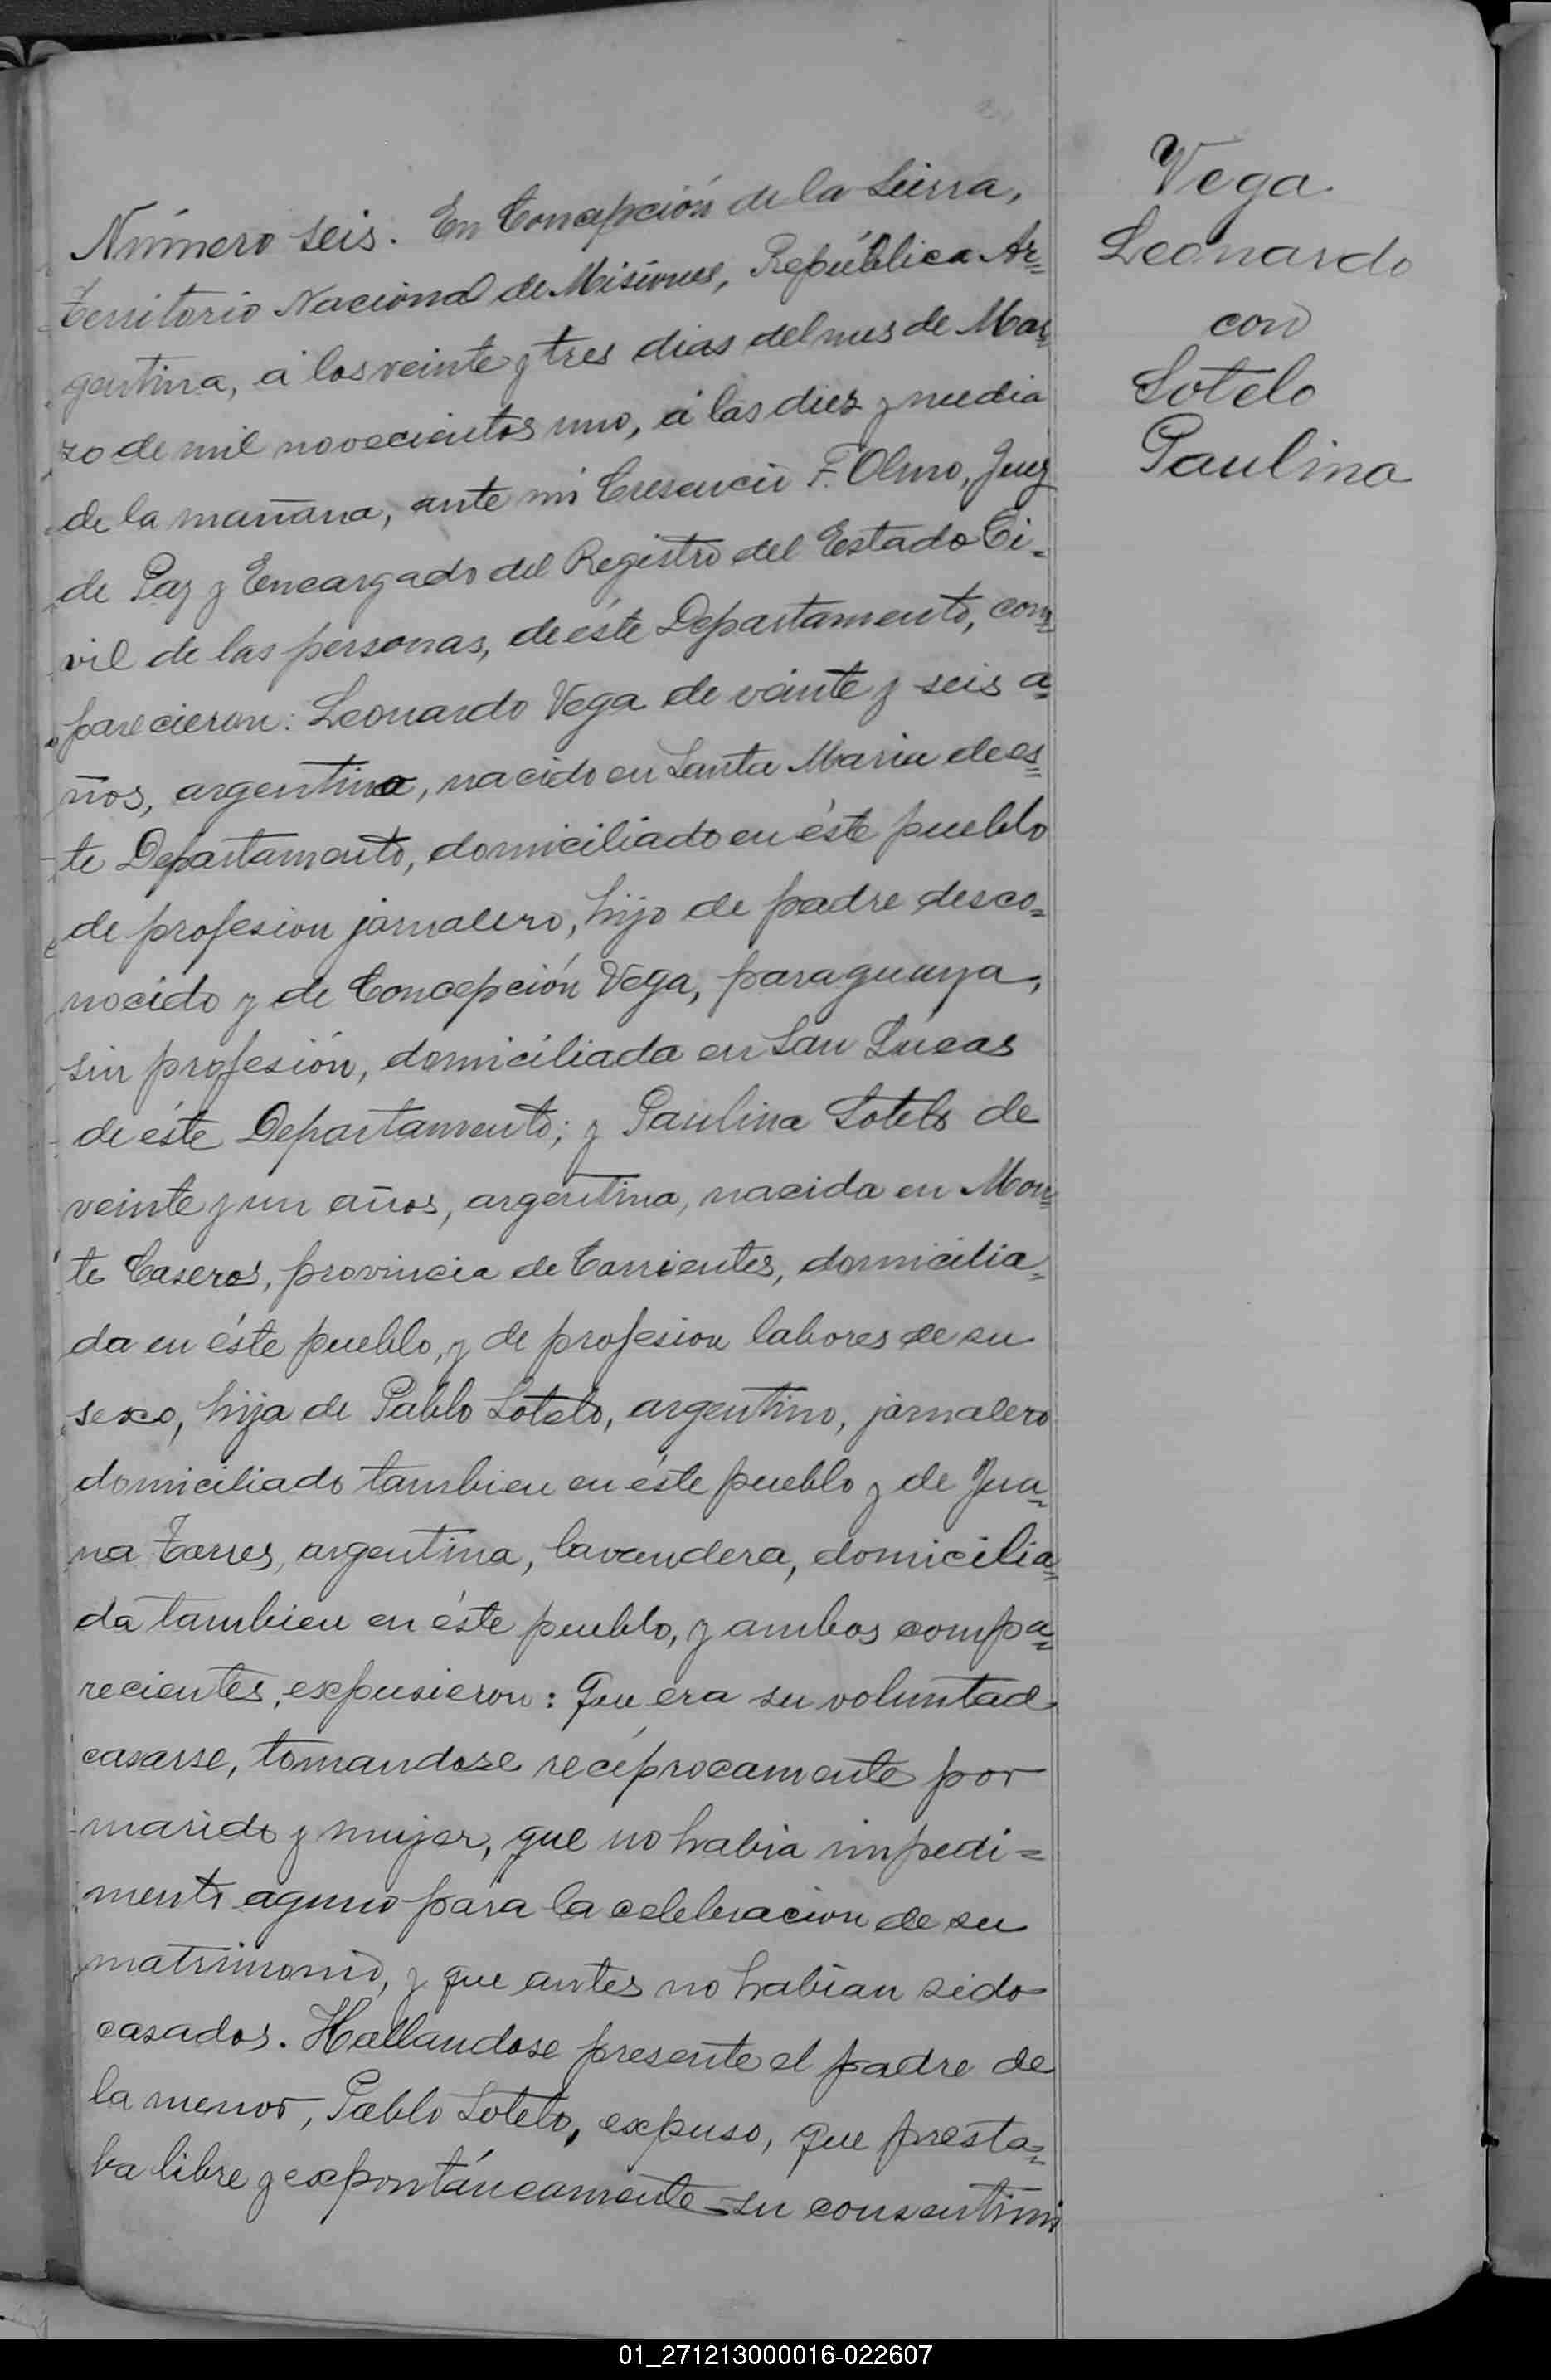 Número seis. En Concepción de la Sierra,
Territorio Nacional de Misiones, República Ar=
gentina, á los veinte y tres dias del mes de Mar=
zo de mil novecientos uno, á las diez y media
de la mañana, ante mi Cresencio F. Olmo, Juez
de Paz y Encargado del Registro del Estado Ci=
vil de las personas, de éste Departamento, com=
parecieron: Leonardo Vega de veinte y seis a=
ños, argentino, nacido en Santa Maria de es=
te Departamento, domiciliado en éste pueblo
de profesion jornalero, hijo de padre desco=
nocido y de Concepción Vega, paraguaya,
sin profesión, domiciliada en San Lúcas
de éste Departamento; y Paulina Sotelo de
veinte y un años, argentina, nacida en Mon=
te Caseros, provincia de Corrientes, domicilia=
da en éste pueblo, y de profesion labores de su
sexo, hija de Pablo Sotelo, argentino, jornalero
domiciliado tambien en éste pueblo y de Jua=
na Torres, argentina, lavandera, domicilia=
da tambien en éste pueblo, y ambos compa=
recientes, expusieron: Que era su voluntad
casarse, tomandose recíprocamente por
marido y mujer, que no habia impedi=
mento aguno para la celebracion de su
matrimonio, y que antes no habían sido
casados. Hallandose presente el padre de
la menor, Pablo Sotelo, expuso, que presta=
ba libre y expontáneamente su consentimi
Vega
Leonardo
con
Sotelo
Paulina
01_271213000016-022607